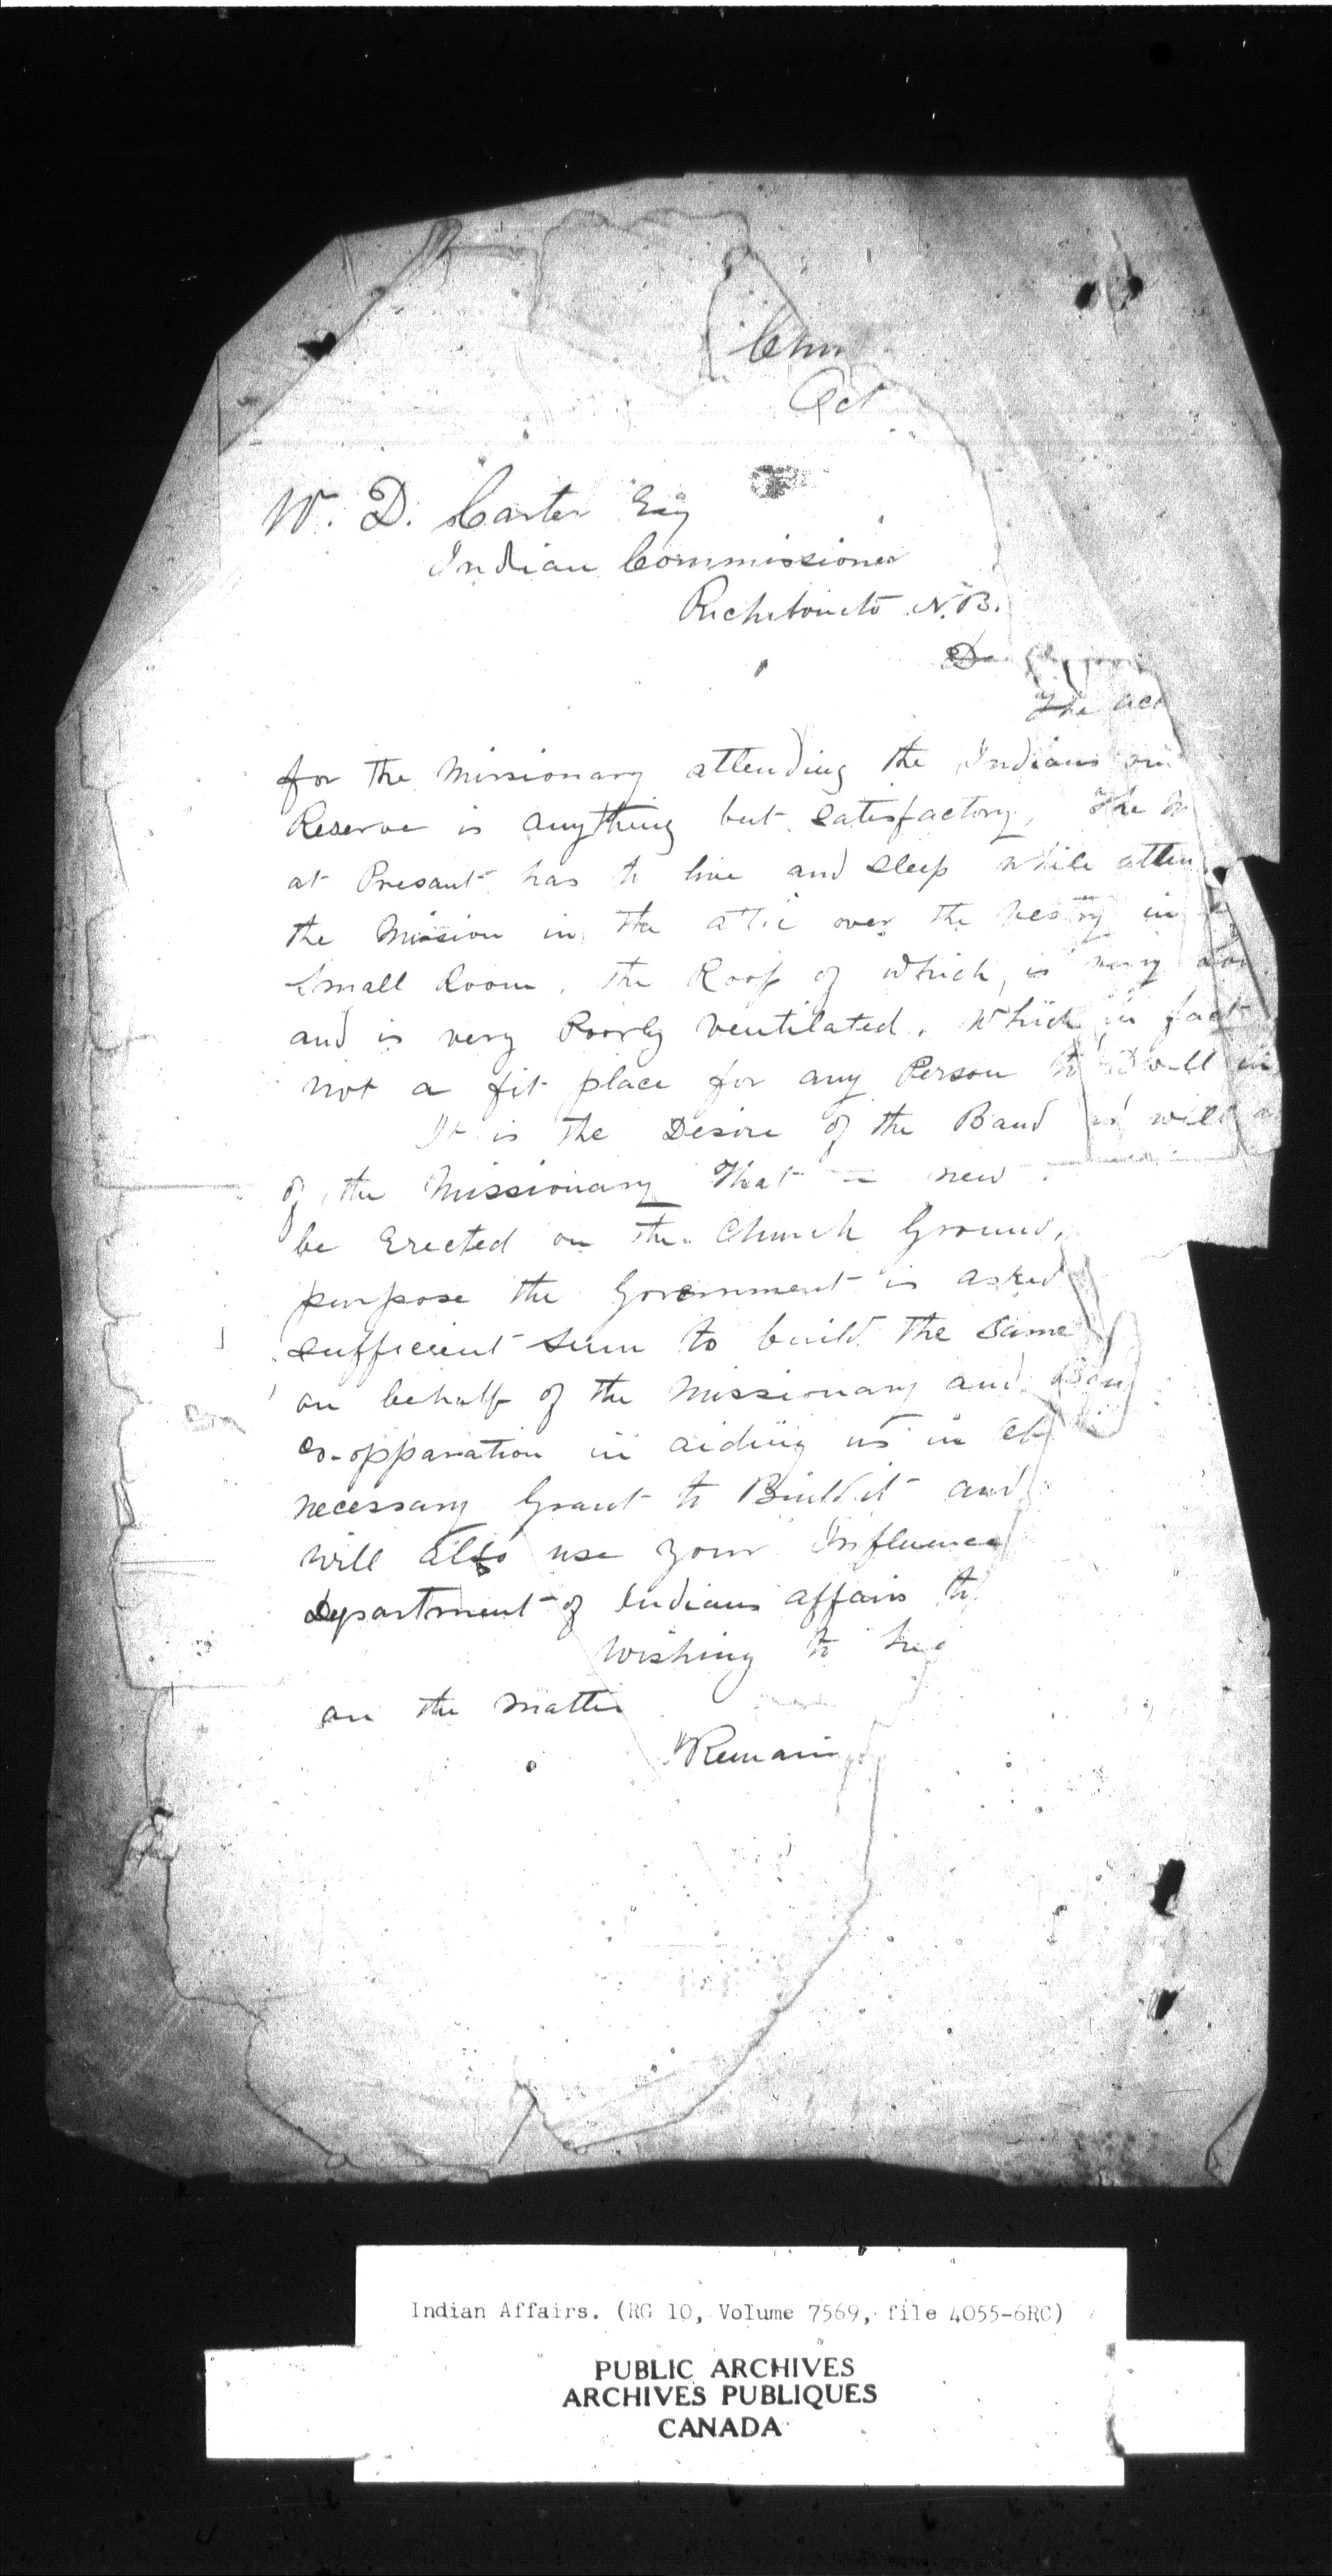 Chu
Oct
W. D. Carter Esq
Indian Commissioner
Richibucto N.B.
The acc
for the Missionary attending the Indians
Reserve is anything but satisfactory, The
at Presant has to live and sleep while atten
the Mission in the attic over the Vestry in
Small Room, the Roof of which, is very
and is very Poorly ventilated. Which in fact
not a fit place for any Person to Dwell in
It is the Desire of the Band as well
of the Missionary That a new
be Erected on the Church Ground,
purpose the Government is asked
sufficient sum to build the same
on behalf of the Missionary and Ban
co-opparation in aiding us in
necessary Grant to Build it and
will also use your Influence
Department of Indians affairs to
Wishing to
on the matter
I Remain
Indian Affairs. (RG 10, Volume 7569, file 4055-6RC)
PUBLIC ARCHIVES
ARCHIVES PUBLIQUES
CANADA